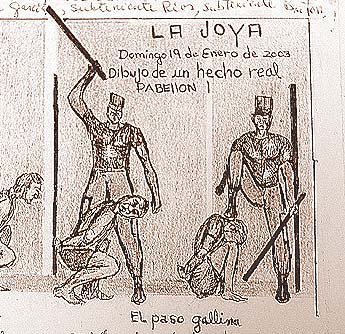 García, Subteniente Ríos, Subteniente
LA JOYA
Domingo 19 de Enero de 2003
Dibujo de un hecho real
PABELLON 1
El paso gallina